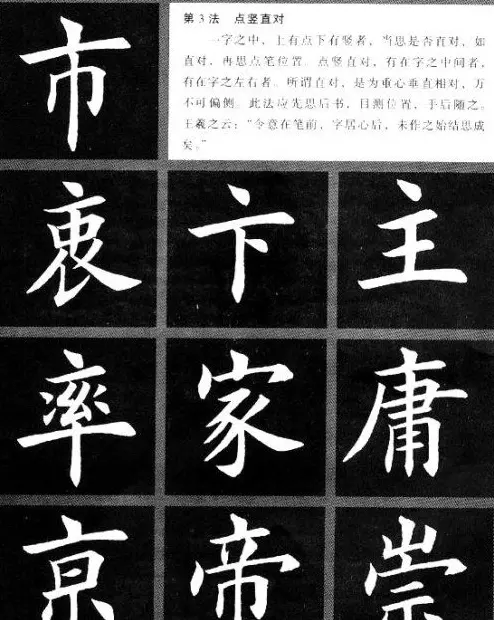 市
第3法 点竖直对
一字之中，上有点下有竖者，当思是否直对，如
直对，再思点笔位置。点竖直对，有在字之中间者，
有在字之左右者。所谓直对，是为重心垂直相对，万
不可偏侧。此法应先思后书，目测位置，手后随之。
王羲之云：“令意在笔前，字居心后，未作之始结思成
矣。”
衷 卞 主
率 家 庸
京 帝 崇